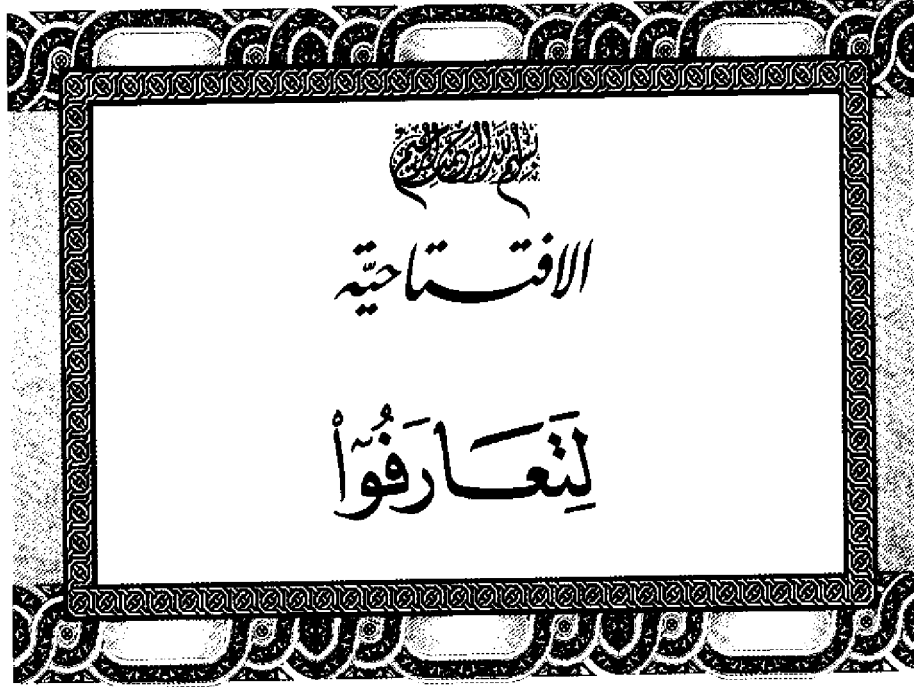 بسم الله الرحمن الرحيم
الافتتاحيّة
لِتَعَارَفُوٓا۟